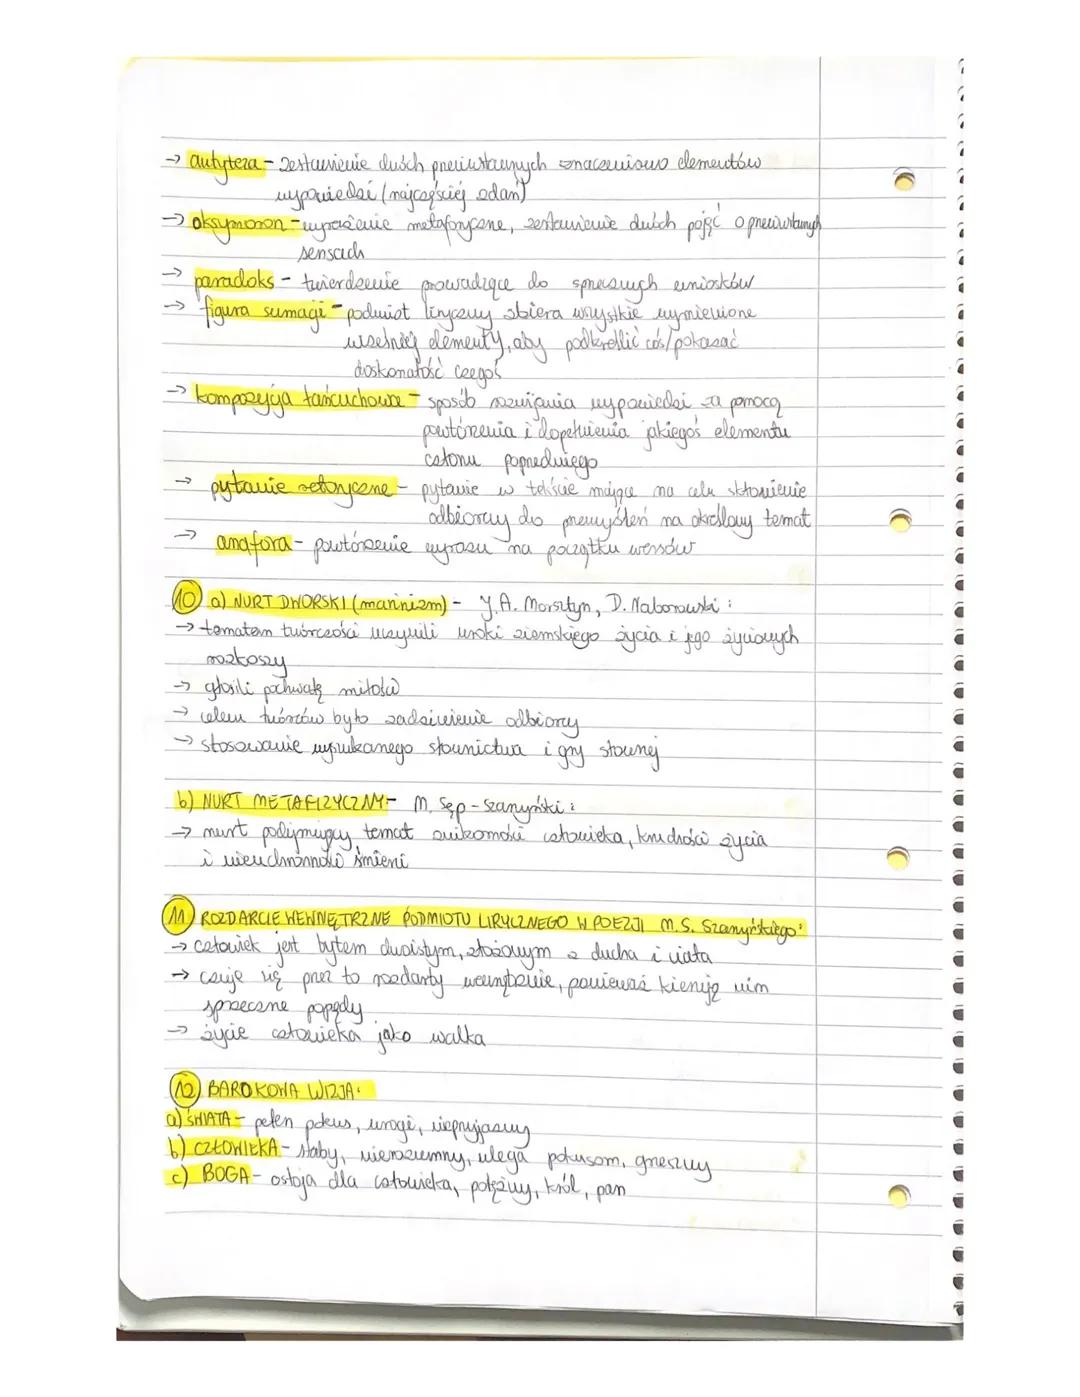 → antyteza - zestawienie dwóch przeciwstawnych znaczeniowo elementów
wypowiedzi (najczęściej zdań)
→ oksymoron - wyrażenie metaforyczne, zestawienie dwóch pojęć o przeciwstawnych
sensach
→ paradoks - twierdzenie prowadzące do sprzecznych wniosków
→ figura sumacji - podmiot liryczny zbiera wszystkie wymienione
wcześniej elementy, aby podkreślić coś/pokazać
doskonałość czegoś
→ kompozycja łańcuchowa - sposób rozwijania wypowiedzi za pomocą
powtórzenia i dopełnienia jakiegoś elementu
członu poprzedniego
→ pytanie retoryczne - pytanie w tekście mające na celu skłonienie
odbiorcy do przemyśleń na określony temat
→ anafora - powtórzenie wyrazu na początku wersów
10 a) NURT DWORSKI (marinizm) - J.A. Morsztyn, D. Naborowski:
→ tematem twórczości uczynili uroki ziemskiego życia i jego życiowych
rozkoszy
→ głosili pochwałę miłości
→ celem twórców było zadziwienie odbiorcy
→ stosowanie wyszukanego słownictwa i gry słownej
b) NURT METAFIZYCZNY - M. Sęp-Szarzyński:
→ nurt podejmujący temat znikomości człowieka, kruchości życia
i nieuchronności śmierci
11 ROZDARCIE WEWNĘTRZNE PODMIOTU LIRYCZNEGO W POEZJI M.S. Szarzyńskiego:
→ człowiek jest bytem dwoistym, złożonym z ducha i ciała
→ czuje się przez to rozdarty wewnętrznie, ponieważ kierują nim
sprzeczne popędy
→ życie człowieka jako walka
12 BAROKOWA WIZJA:
a) ŚWIATA - pełen pokus, wrogi, nieprzyjazny
b) CZŁOWIEKA - słaby, nierozumny, ulega pokusom, grzeszny
c) BOGA - ostoja dla człowieka, potężny, król, pan